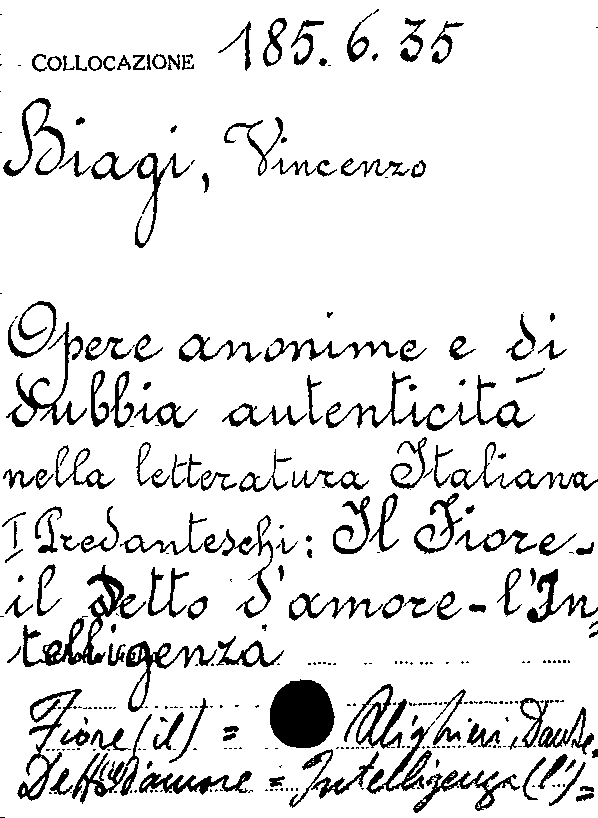 COLLOCAZIONE 185.6.35
Biagi, Vincenzo
Opere anonime e di
dubbia autenticità
nella letteratura Italiana
I Predanteschi: Il Fiore-
il Detto d'amore-l'In=
telligenza
Fiore (il) = Alighieri, Dante.
Detto d'amore = Intelligenza (l') =